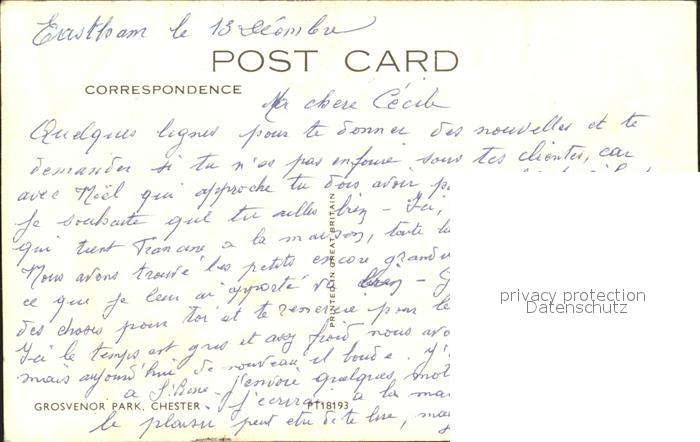 Eastham le 13 Décembre
POST CARD
CORRESPONDENCE
Ma chère Cécile
Quelques lignes pour te donner des nouvelles et te
demander si tu n'es pas enfouie sous tes clientes, car
avec Noël qui approche tu dois avoir
Je souhaite que tu ailles bien - Ici,
qui tient Francine à la maison, toute
Nous avons trouvé les petits encore
ce que je leur ai apporté
des choses pour toi et te remercie pour
Ici le temps est gris et assez froid nous
mais aujourd'hui de nouveau il
à J'envoie quelques mots
GROSVENOR PARK, CHESTER. j'écrirai à la PT18193
le plaisir peut être de te lire,
PRINTED IN GREAT BRITAIN
privacy protection
Datenschutz